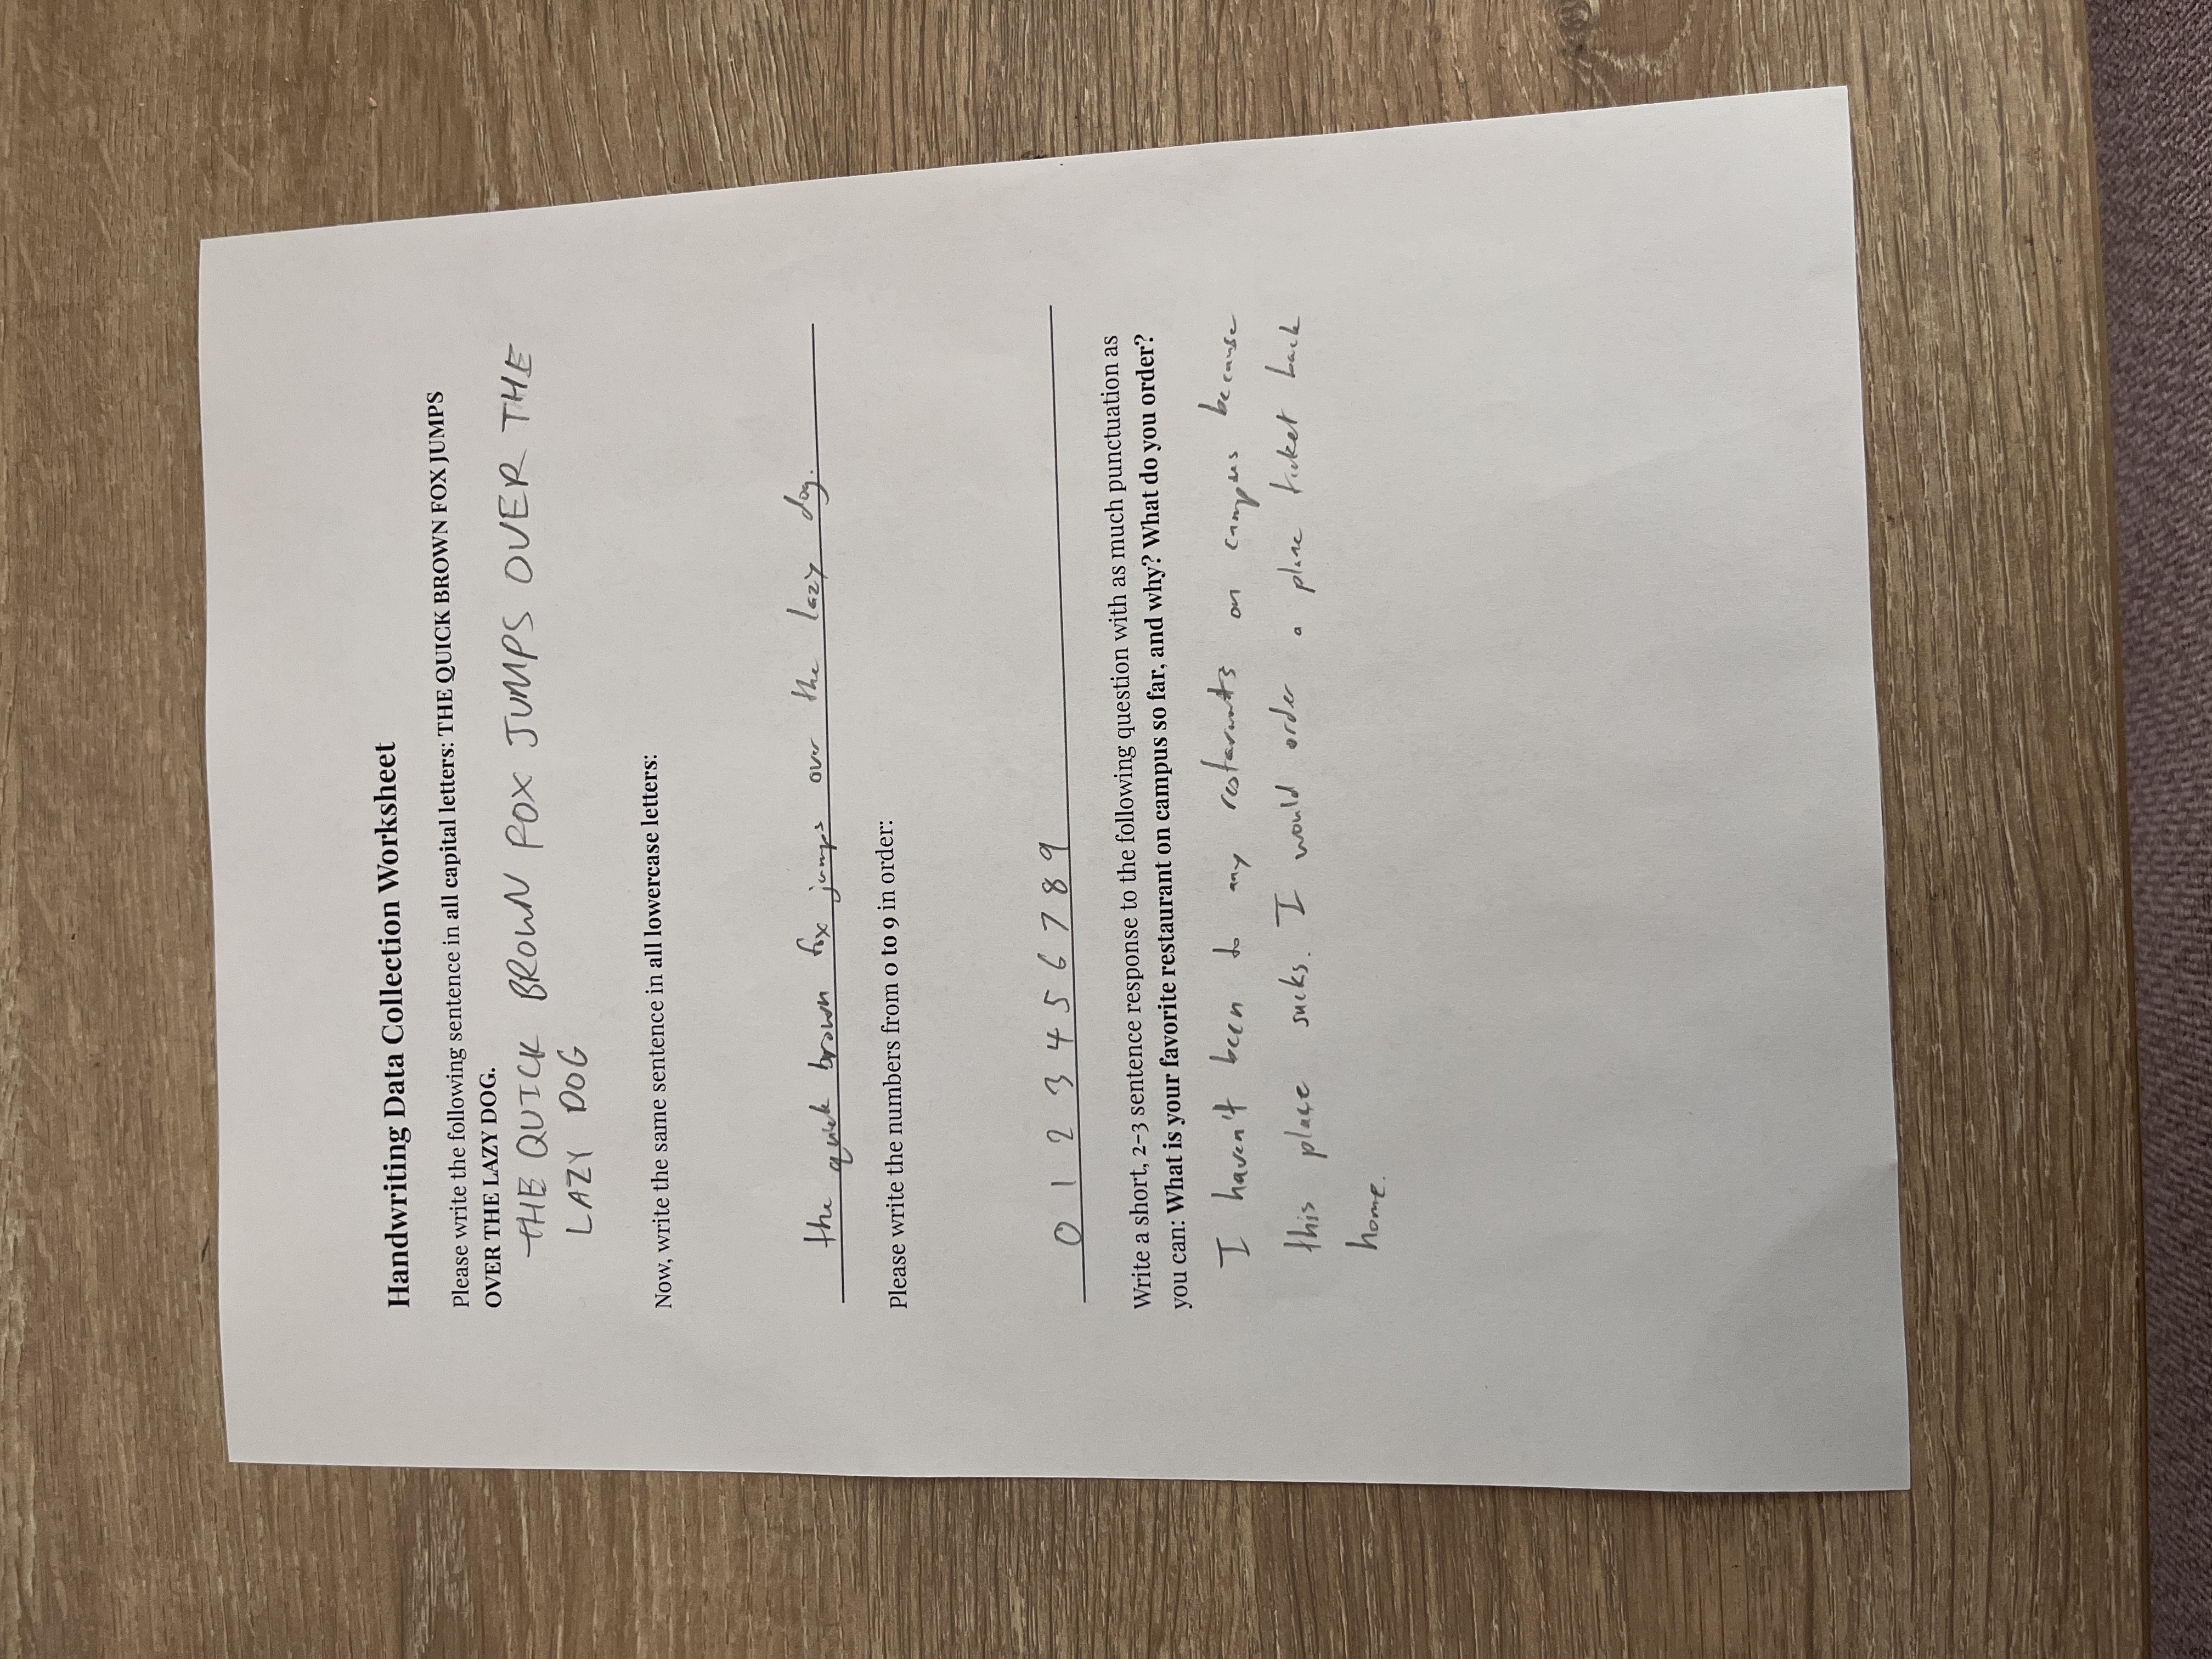 Handwriting Data Collection Worksheet
Please write the following sentence in all capital letters: THE QUICK BROWN FOX JUMPS
OVER THE LAZY DOG.
THE QUICK BROWN FOX JUMPS OVER THE
LAZY DOG
Now, write the same sentence in all lowercase letters:
the quick brown fox jumps over the lazy dog.
Please write the numbers from 0 to 9 in order:
0 1 2 3 4 5 6 7 8 9
Write a short, 2-3 sentence response to the following question with as much punctuation as
you can: What is your favorite restaurant on campus so far, and why? What do you order?
I haven't been to any restarunts on campus because
this place sucks. I would order a plane ticket back
home.